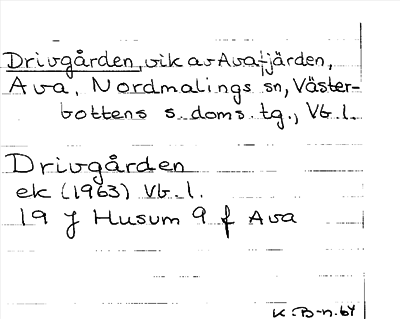 Drivgården, vik av Avafjärden,
Ava, Nordmalings sn, Väster-
bottens s. doms. tg., Vb. l.
Drivgården
ek (1963) Vb. l.
19 J Husum 9 f Ava
K.B-n.64